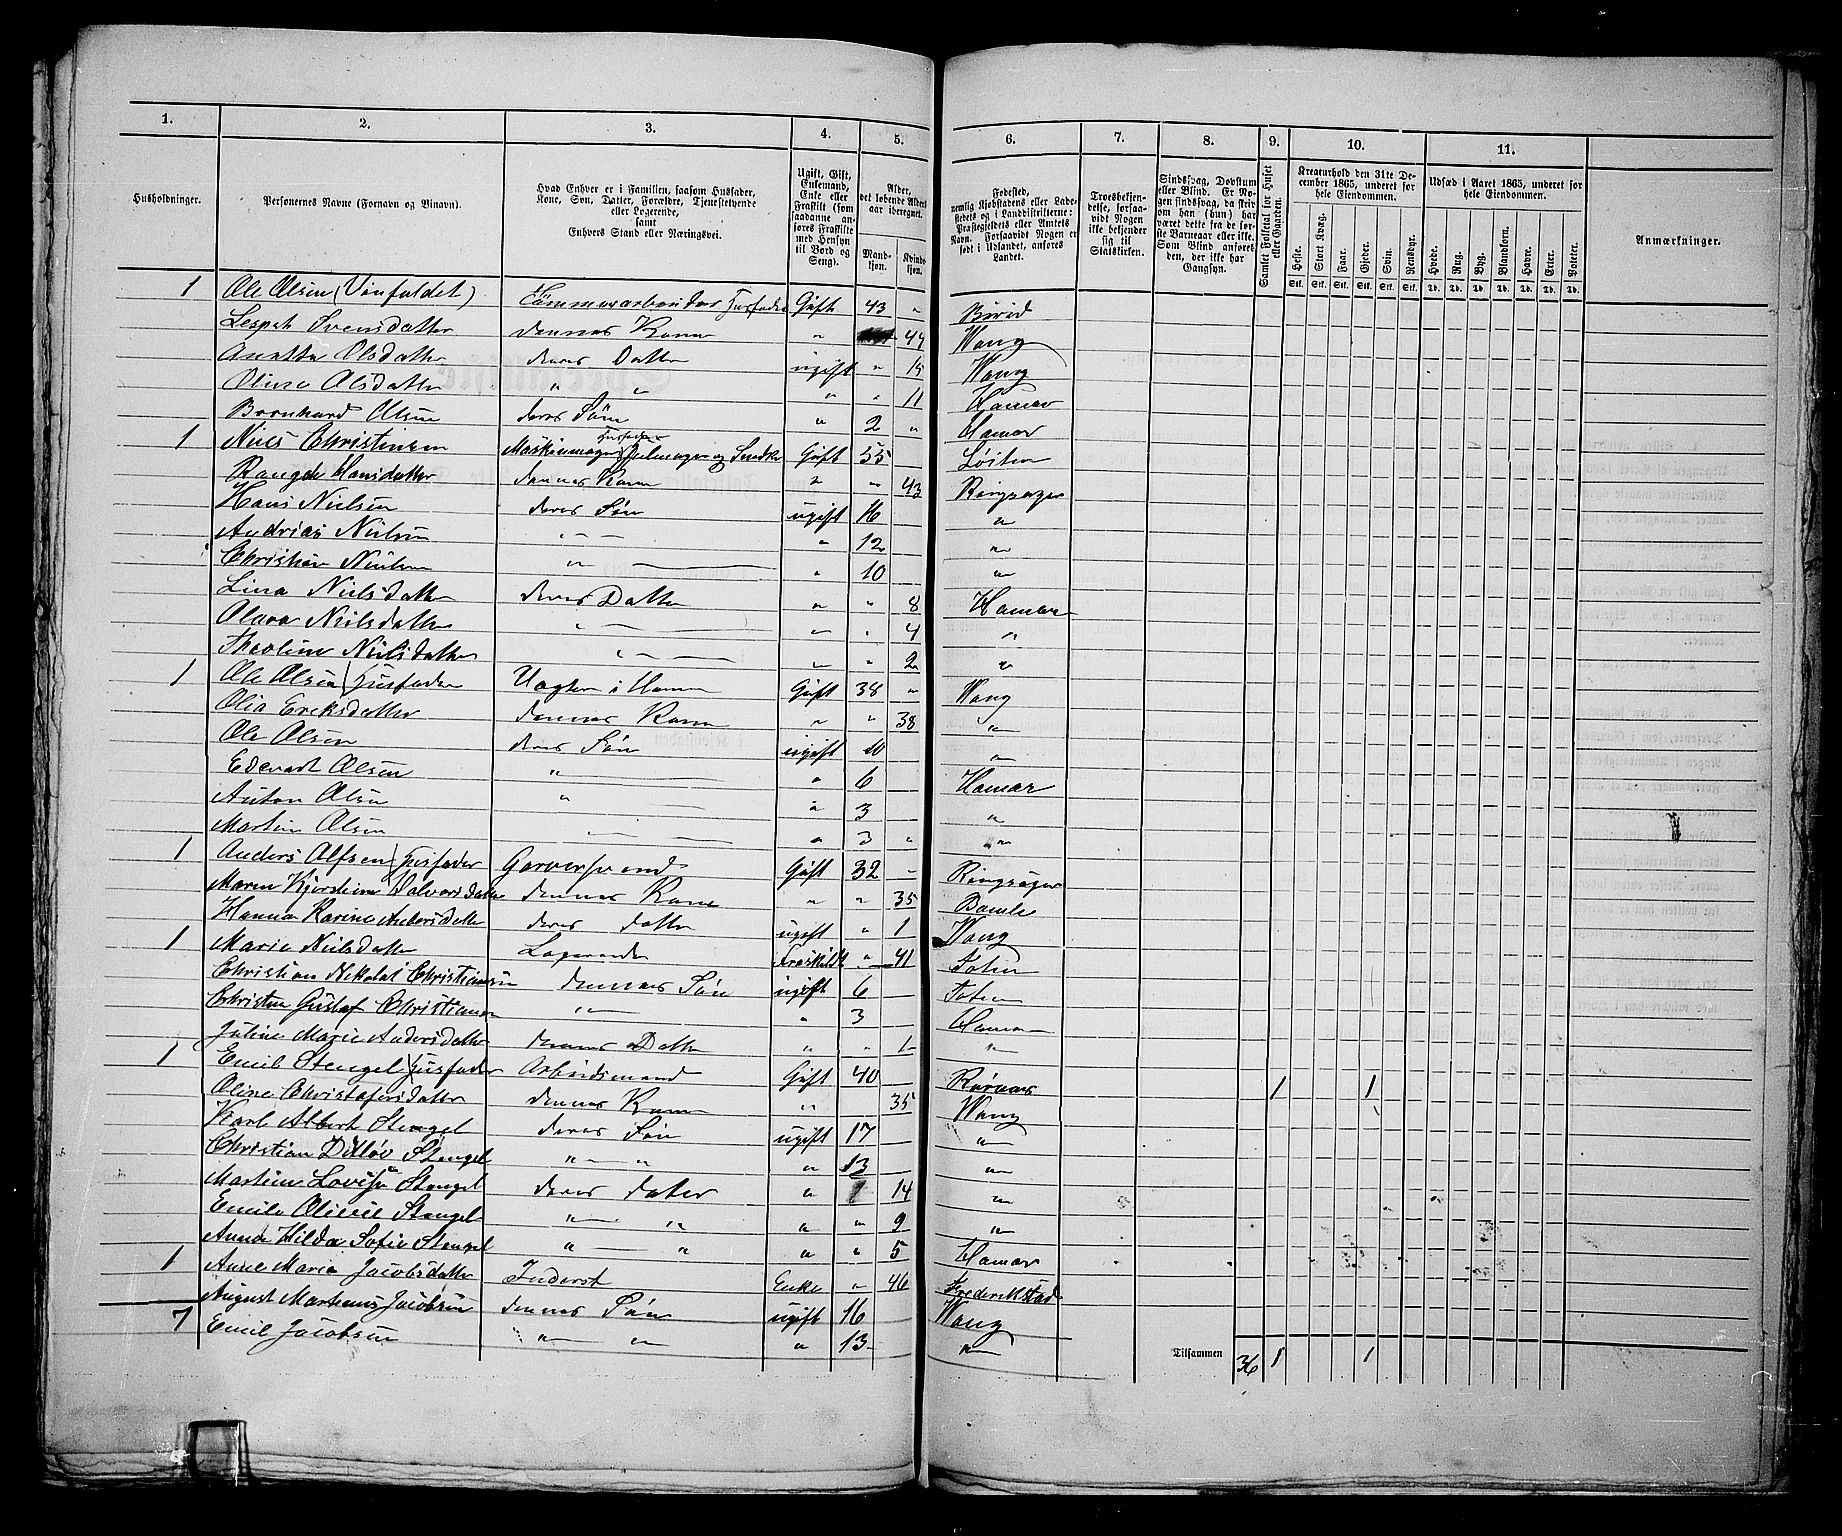 1. 2. 3. 4. 5. 6. 7. 8. 9. 10. 11.
Husholdninger.
Personernes Navne (Fornavn og Binavn).
Hvad Enhver er i Familien, saasom Husfader,
Kone, Søn, Datter, Forældre, Tjenestetyende
eller Logerende,
samt
Enhvers Stand eller Næringsvei.
Ugift, Gift,
Enkemand,
Enke eller
Fraskilt (som
saadanne an-
føres Fraskilte
med Hensyn
til Bord og
Seng).
Alder,
det løbende Alders-
aar iberegnet.
Mand-
kjøn.
Kvinde-
kjøn.
Fødested,
nemlig Kjøbstadens eller Lade-
stedets og i Landdistrikterne:
Præstegjeldets eller Amtets
Navn. Forsaavidt Nogen er
født i Udlandet, anføres
Landet.
Troesbekjen-
delse, forsaa-
vidt Nogen
ikke bekjender
sig til
Statskirken.
Sindssvag, Døvstum
eller Blind. Er No-
gen sindssvag, da skriv
om han (hun) har
været dette fra de før-
ste Barneaar eller ikke.
Som Blind anføres
den, der ikke har
Gangsyn.
Samlet Folketal for Huset
eller Gaarden.
Kreaturhold den 31te De-
cember 1865, underet for
hele Eiendommen.
Heste. Stort Kvæg. Faar. Gjeder. Svin. Rensdyr.
Stk. Stk. Stk. Stk. Stk. Stk.
Udsæd i Aaret 1865, underet for
hele Eiendommen.
Hvede. Rug. Byg. Blandkorn. Havre. Erter. Poteter.
Td. Td. Td. Td. Td. Td. Td.
Anmærkninger.
1 Ole Olsen (Vinfaldet) Tømmerarbeider Husfader Gift 43 " Birid
Lespet Svensdatter dennes Kone " 44 Wang
Anette Olsdatter deres Datter ugift " 15 Wang
Oline Olsdatter " " " " 11 Hamar
Bernhard Olsen deres Søn " 2 " Hamar
1 Niels Christensen Maskinmager Husfader Hjulmager og Smed Gift 55 Løiten
Rangde Hansdatter dennes Kone " " 43 Ringsager
Hans Nielsen deres Søn ugift 16 "
Andrias Nielsen " " 12 "
Christian Nielsen " " 10 "
Lina Nielsdatter deres Datter " " 8 Hamar
Olava Nielsdatter " " " 4 "
Theoline Nielsdatter " " " 2 "
1 Ole Olsen (Husfader Vægter i Hamar Gift 38 " Wang
Olia Eriksdatter dennes Kone " " 38 "
Ole Olsen deres Søn ugift 10 "
Edevart Olsen " " 6 Hamar
Anton Olsen " " 3 "
Martin Olsen " " 3 " "
1 Anders Alfsen (Husfader Garversvend Gift 32 " Ringsager
Maren Kjerstine Halvorsdatter dennes Kone " " 35 Bamle
Hanna Karine Andersdatter deres datter ugift " 1 Wang
1 Marie Nielsdatter Logerende Fraskildt " 41 Toten
Christian Nikolai Christiansen dennes Søn ugift 6 Toten
Christen Gustaf Christiansen " " 3 Hamar
Juline Marie Andersdatter dennes Datter " " 1 "
1 Emil Stengel (Husfader Arbeidsmand Gift 40 Rørnæs 1 1
Oline Christofersdatter dennes Kone " 35 Wang
Karl Albert Stengel deres Søn ugift 17 "
Christian Ditløv Stengel " " " 13 "
Martine Lovisa Stengel deres dater " 14 "
Emilie Olivie Stengel " " " " 9 "
Anna Hilda Sofie Stengel " " " " 5 Hamar
1 Anne Marie Jacobsdatter Inderst Enke " 46 Frederikstad
August Martinus Jacobsen dennes Søn ugift 16 Wang
7 Emil Jacobsen " " " 13 "
Tilsammen 36 1 1